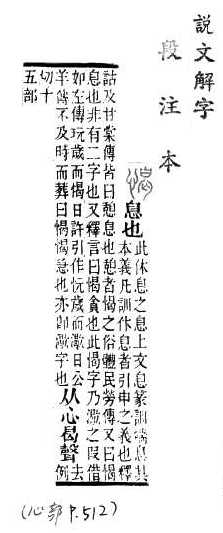 說文解字
段注本
愒 息也 此休息之息上文息篆訓喘息其
本義凡訓休息者引申之義也釋
詁及甘棠傳皆曰憩息也憩者愒之俗體民勞傳又曰愒
息也非有二字也又釋言曰愒貪也此愒字乃㵣之叚借
如左傳玩歲而愒日許引作忨歲而㵣日公
羊傳不及時而葬曰愒愒急也亦卽㵣字也
从心曷聲 去
例
切十
五部
(心部 P.512)